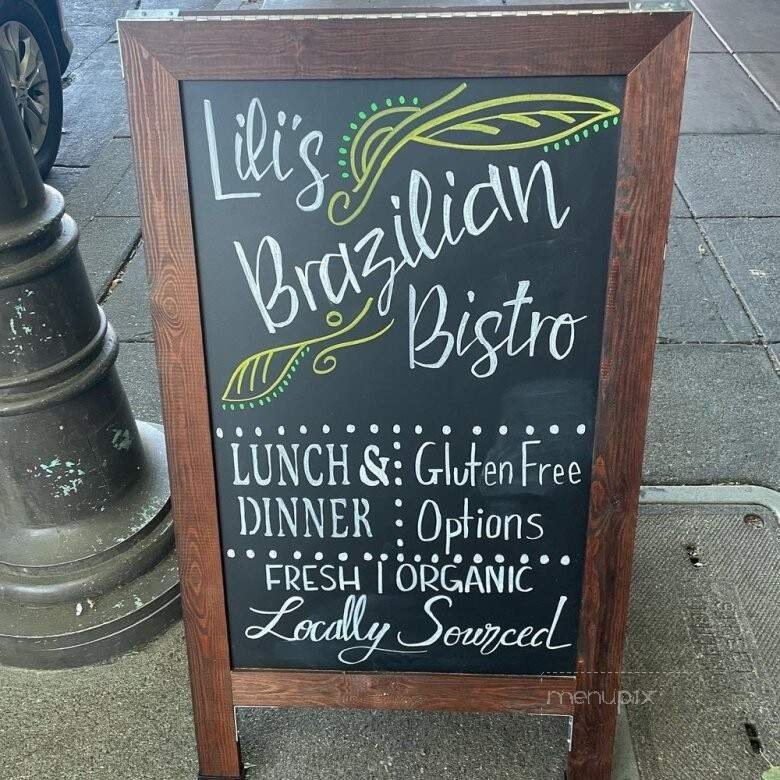 Lili's
Brazilian
Bistro
LUNCH &
DINNER
Gluten Free
Options
FRESH | ORGANIC
Locally Sourced
menupix